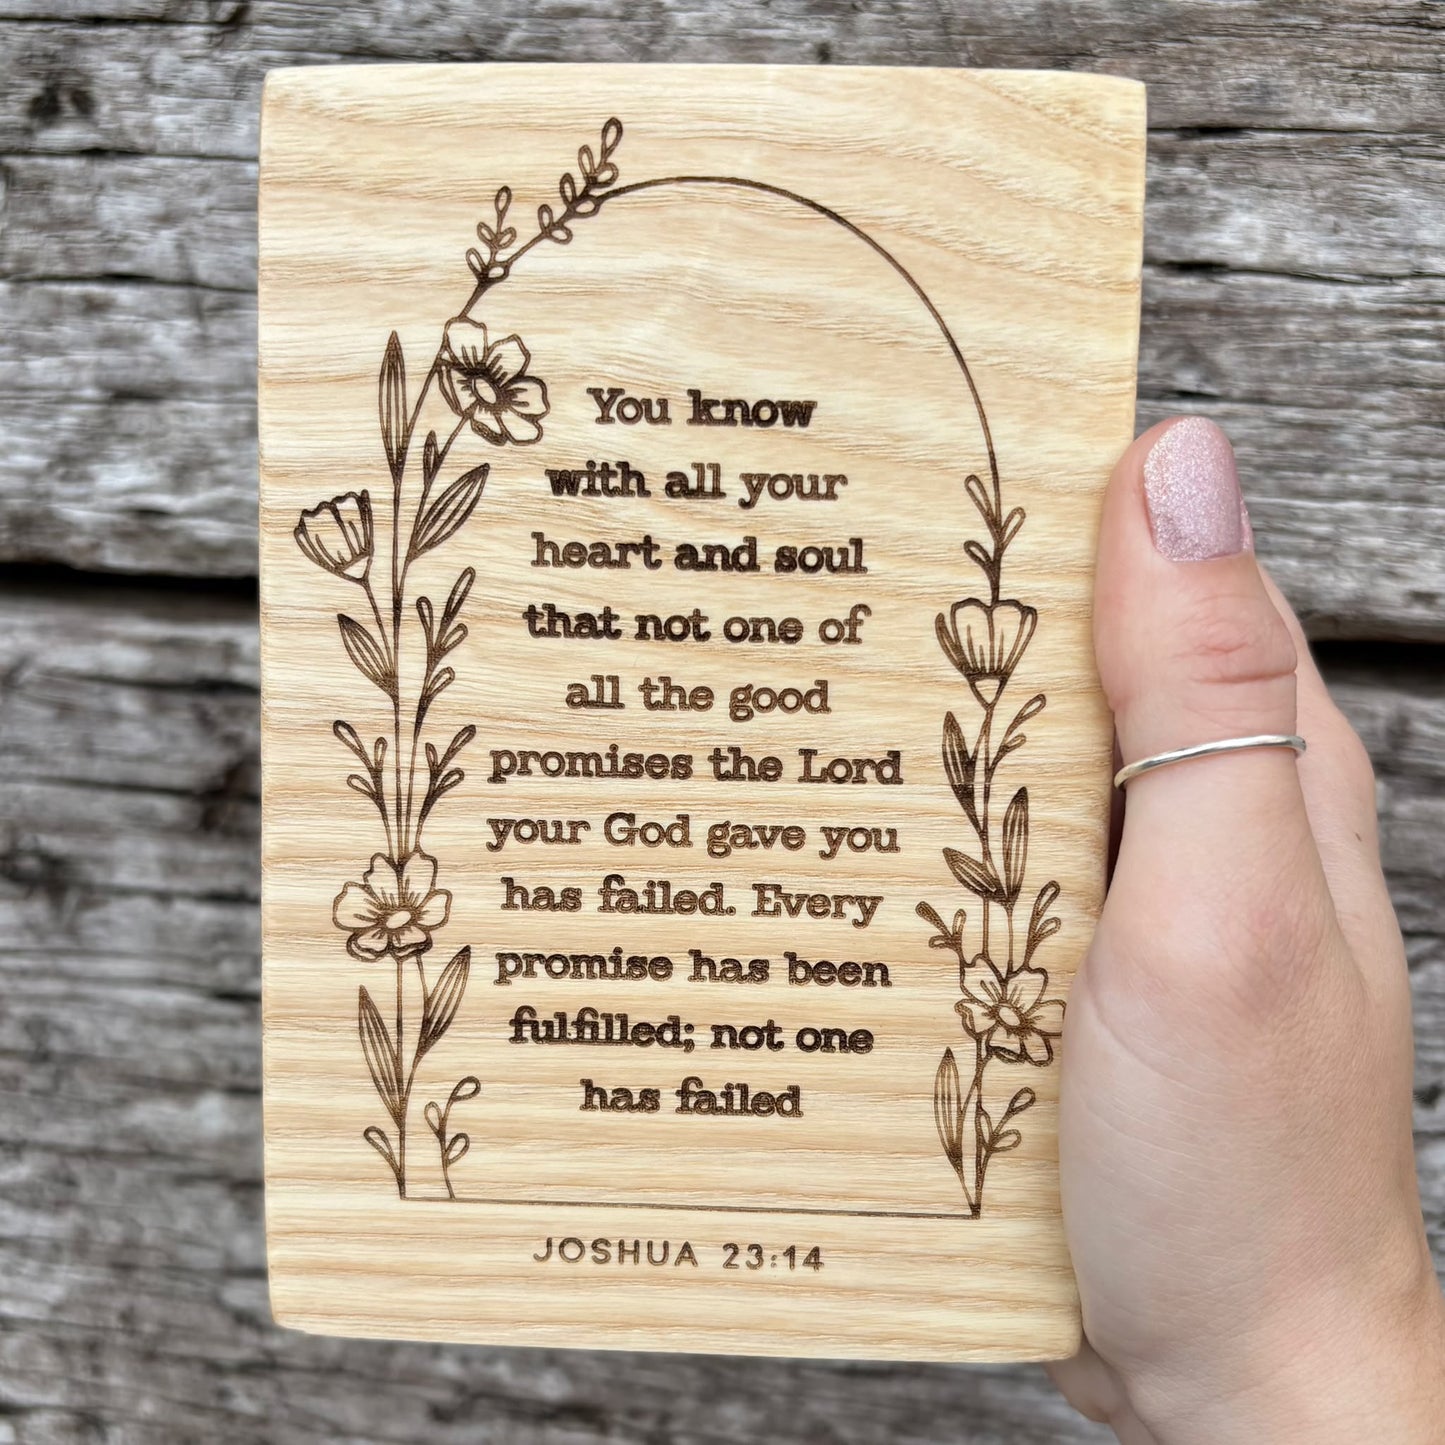 You know
with all your
heart and soul
that not one of
all the good
promises the Lord
your God gave you
has failed. Every
promise has been
fulfilled; not one
has failed
JOSHUA 23:14